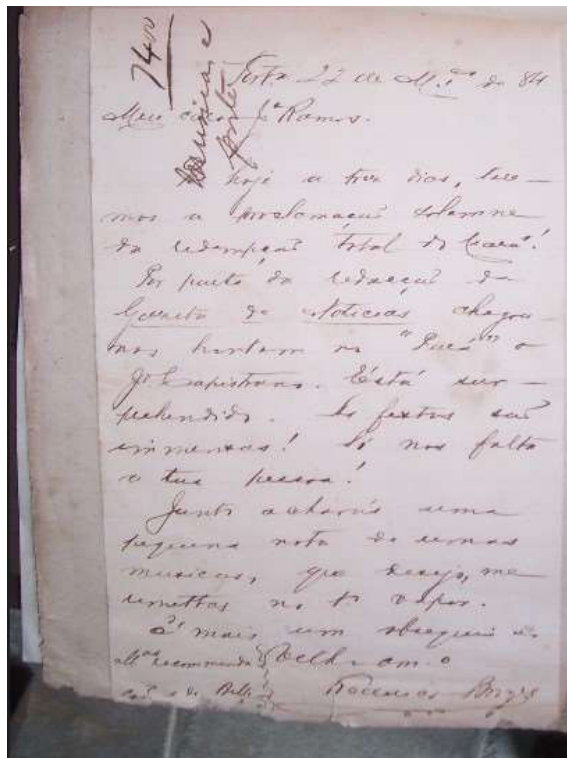 7400
Musicas e
Fort.ª 22 de M.ço de 84
Meu caro J.ª Ramos.
hoje a tres dias, tere-
mos a proclamação solemne
da redempção total do Ceará!
Por parte da redacção da
Gazeta de Noticias chegou-
nos hontem no "Pará" o
J.e Capistrano. Está sur-
prehendido. As festas são
immensas! Só nos falta
a tua pessoa!
Junto acharás uma
pequena nota de umas
musicas, que desejo, me
remettas no 1º vapor.
É mais um obsequio ao
m.tas recommenda velho am.o